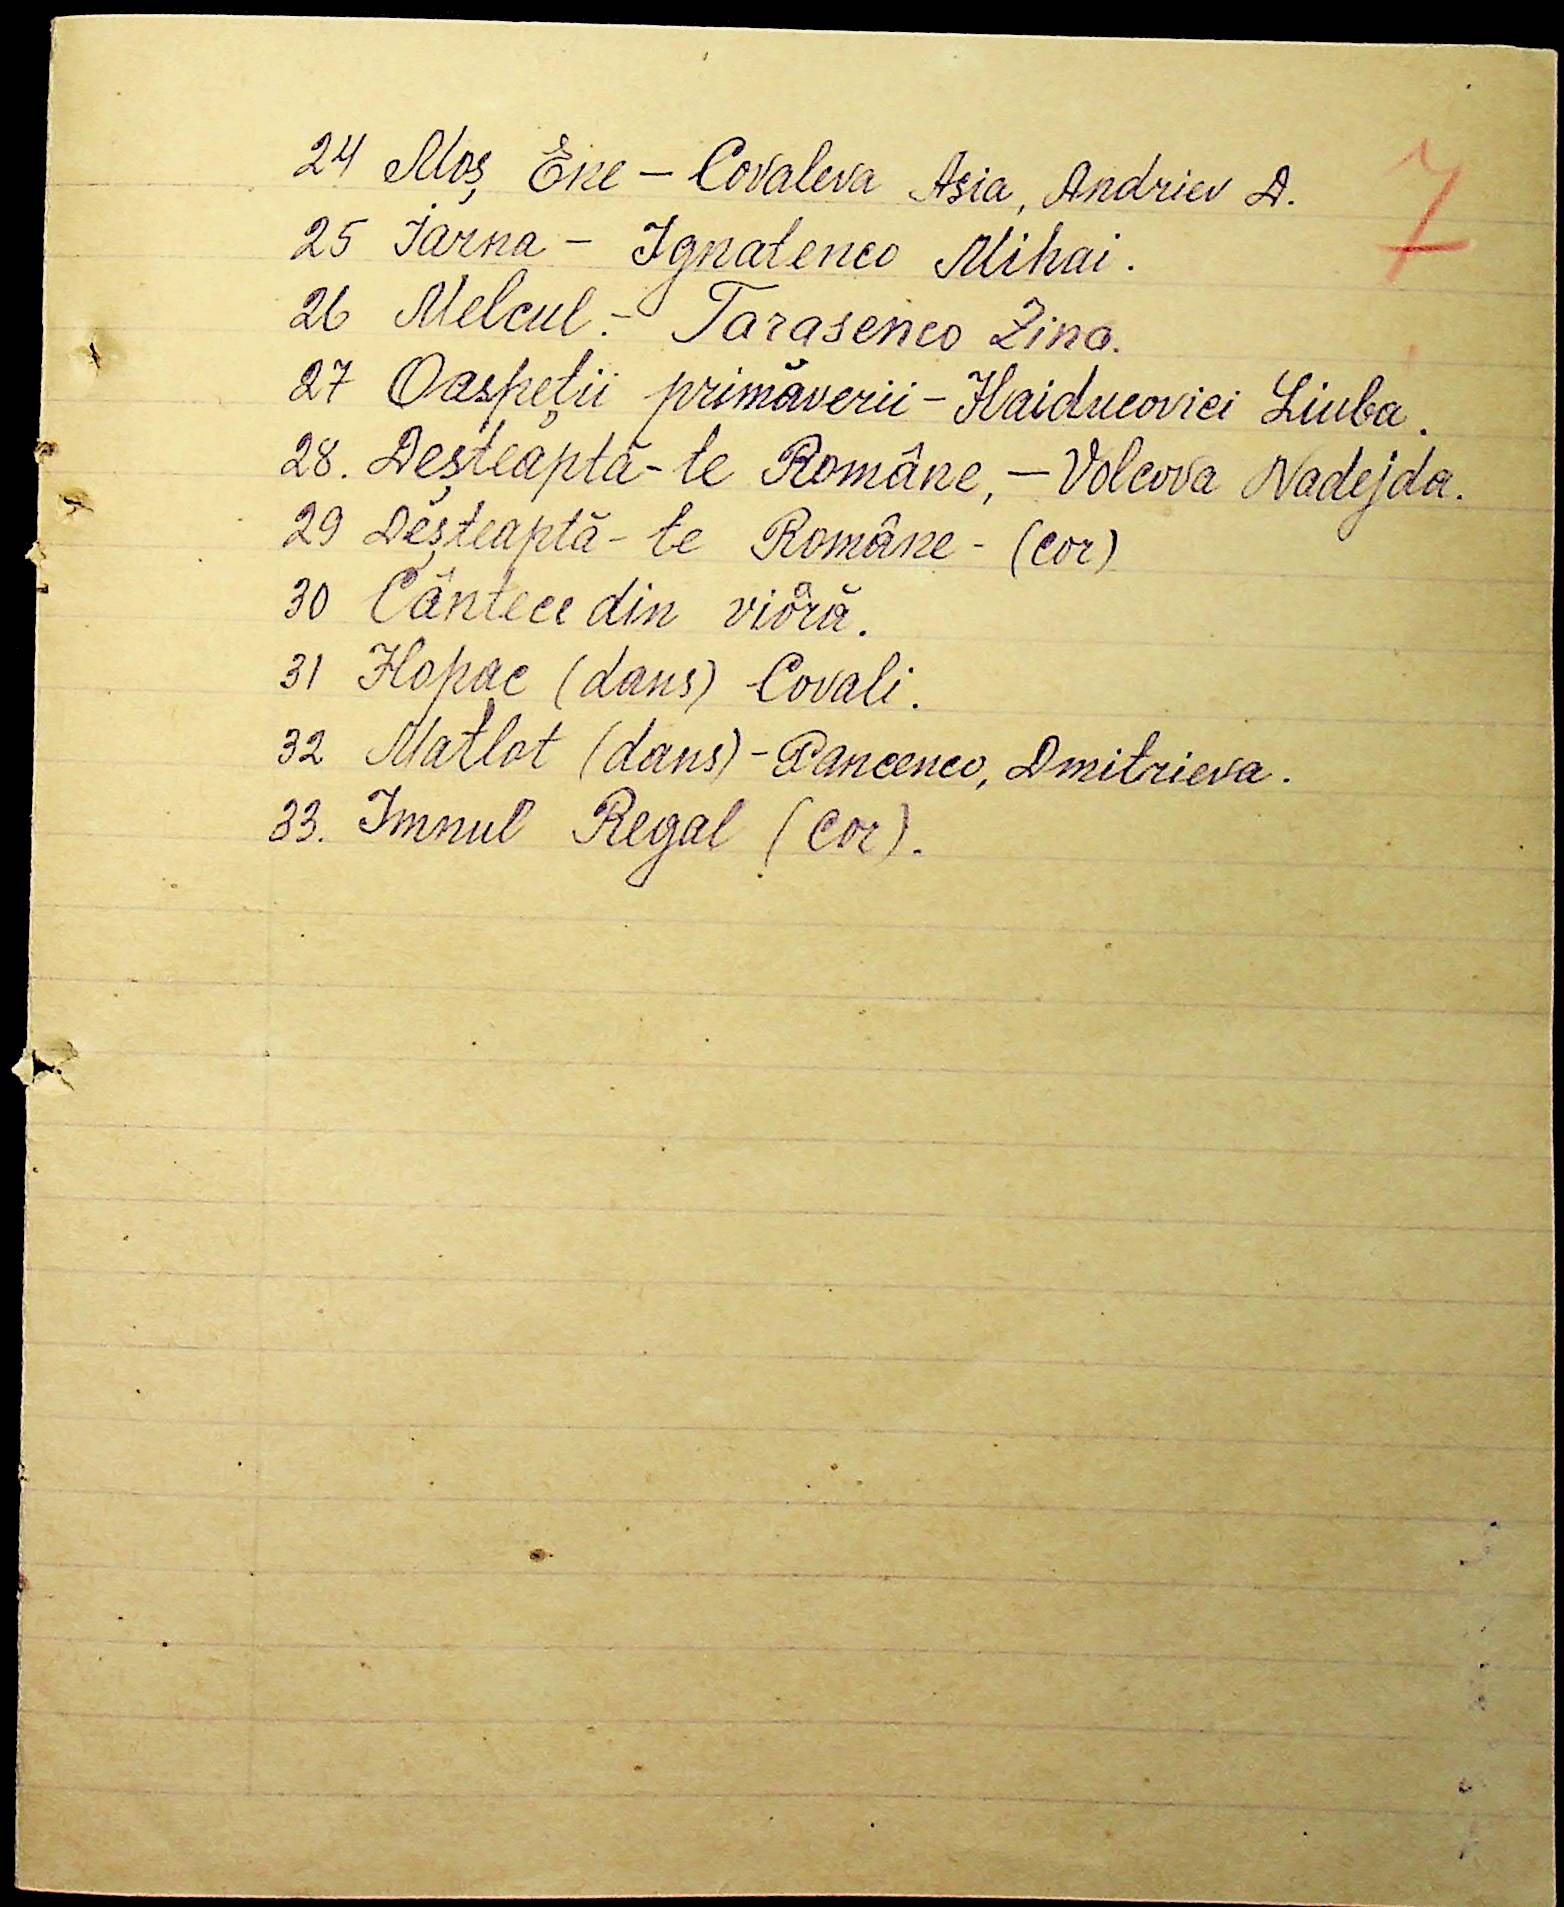 7
24 Moș Ene – Covaleva Asia, Andriev A.
25 Iarna – Ignatenco Mihai.
26 Melcul. – Tarasenco Zina.
27 Oaspeții primăverii – Haiducovici Liuba.
28. Deșteaptă-te Române, – Volcova Nadejda.
29 Deșteaptă-te Române - (cor)
30 Cântece din vioară.
31 Hopac (dans) Covali.
32 Matlot (dans) - Pancenco, Dmitrieva.
33. Imnul Regal (cor).